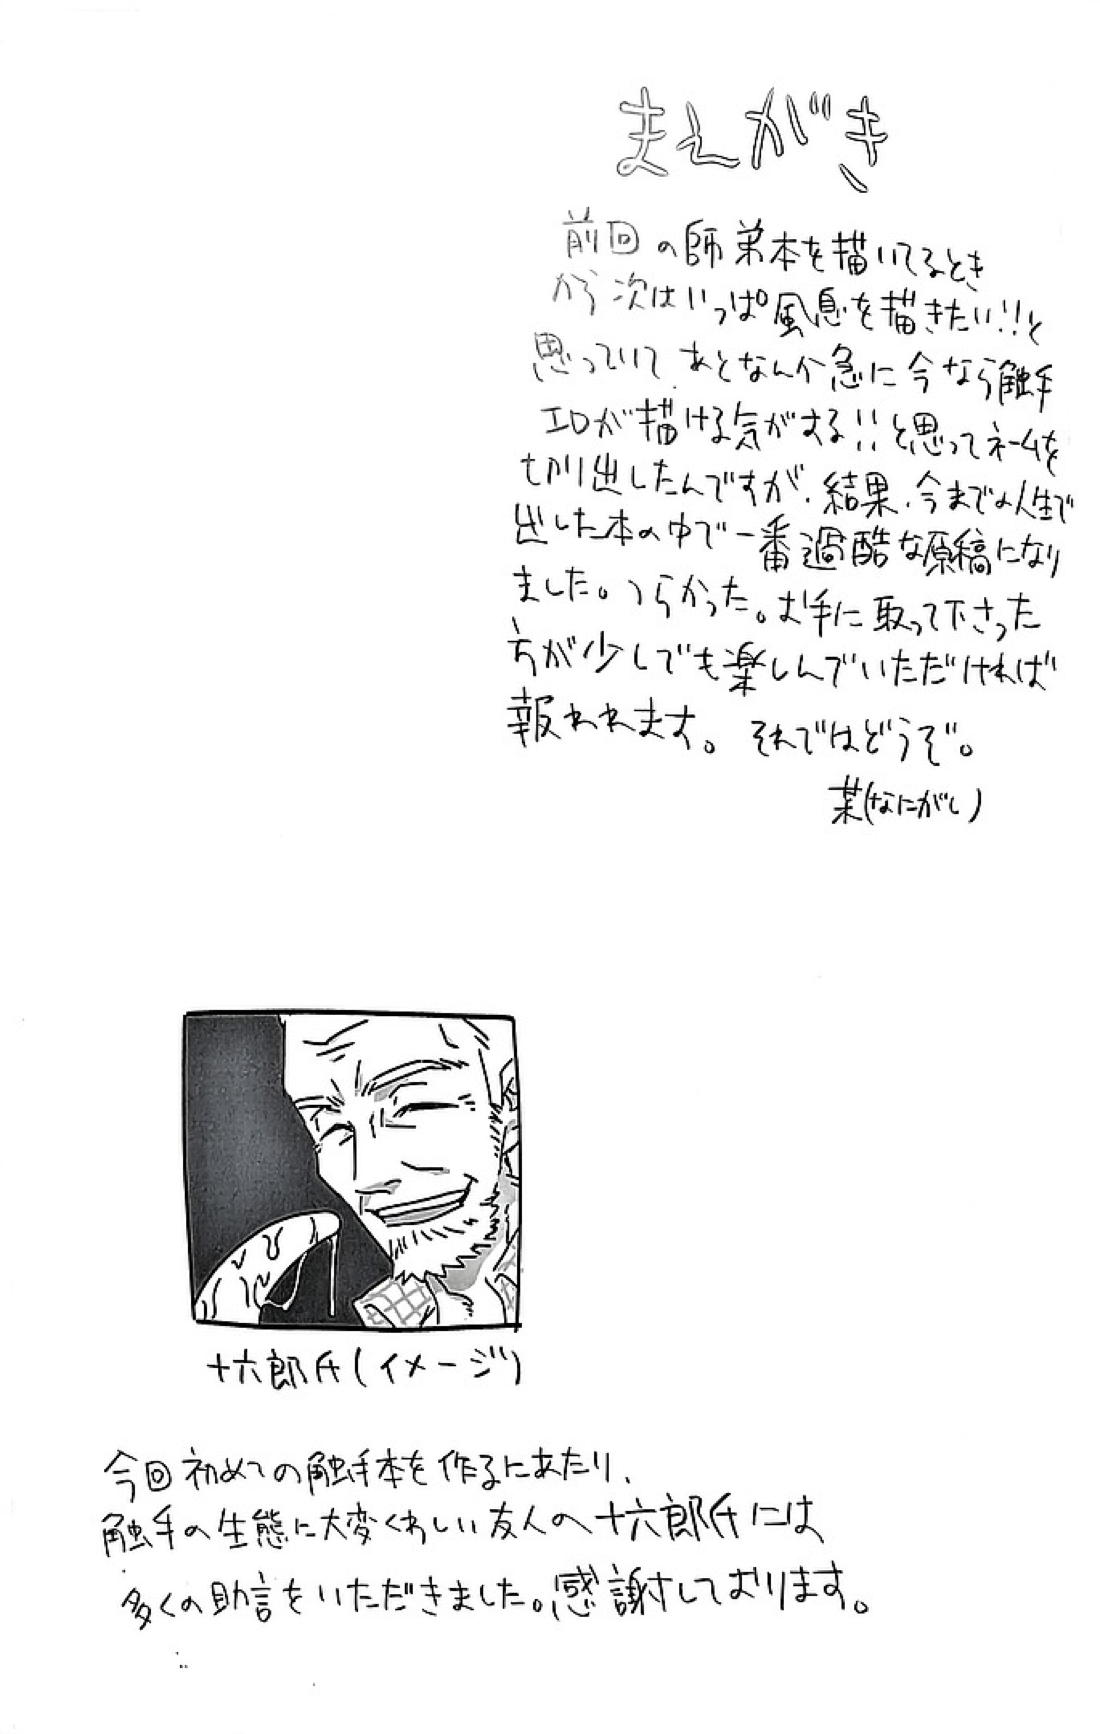 まえがき
前回の師弟本を描いてるとき
から次はいっぱ風息を描きたい!!と
思っていて、あとなんか急に今なら触手
エロが描ける気がする!!と思ってネームを
切り出したんですが、結果、今までの人生で
出した本の中で一番過酷な原稿になり
ました。つらかった。お手に取って下さった
方が少しでも楽しんでいただければ
報われます。それではどうぞ。
某(なにがし)
十六郎氏(イメージ)
今回初めての触手本を作るにあたり、
触手の生態に大変くわしい友人の十六郎氏には
多くの助言をいただきました。感謝しております。